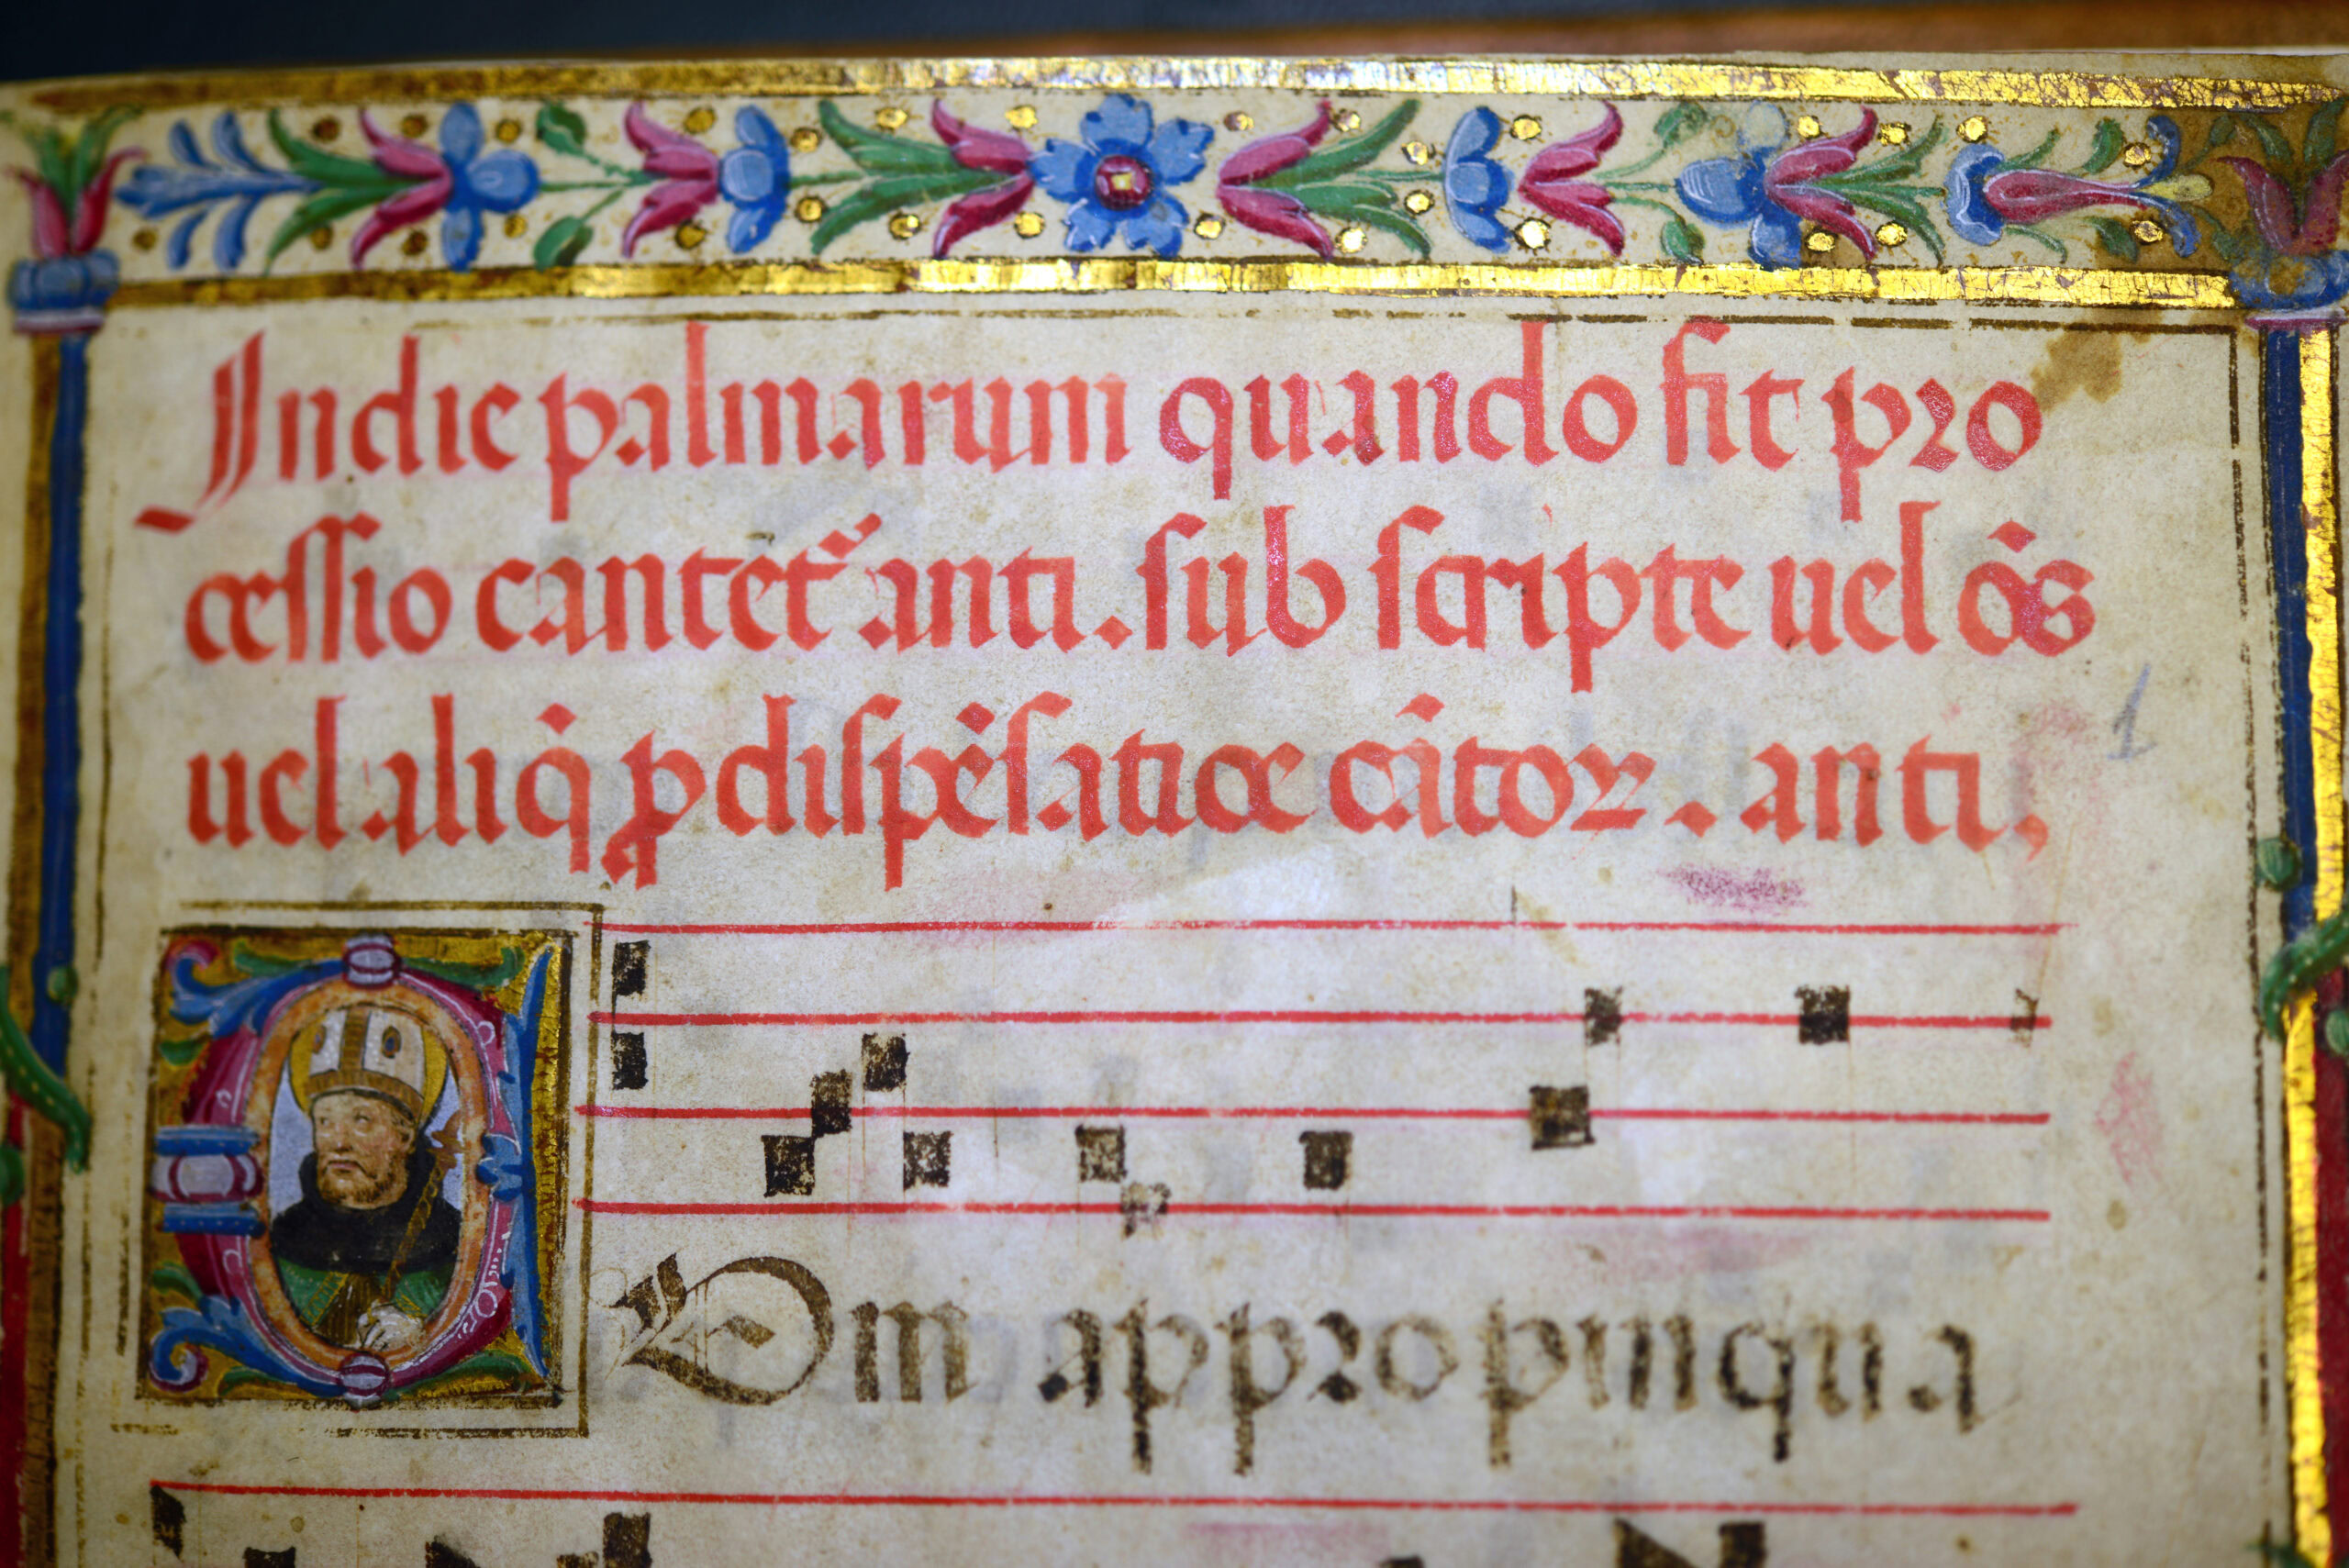 Indie palmarum quando fit pro
cessio cantet᷑ anti. sub scripte uel o᷒s
uel aliq̇ ꝓ dispe᷒satiõe cȃtoꝝ. anti,
1
COm appropinqua